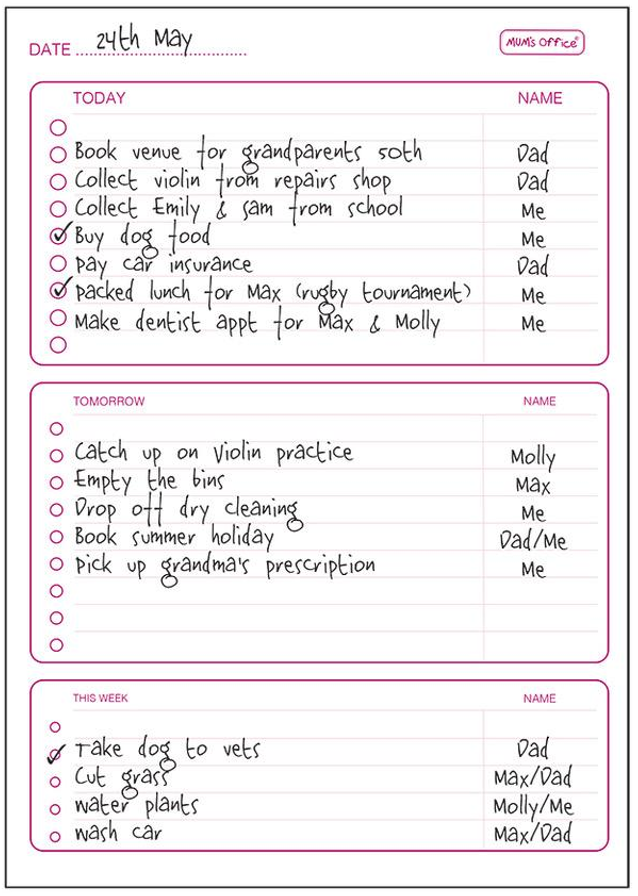 DATE 24th May
MUM's Office®
TODAY NAME
Book venue for grandparents 50th Dad
Collect violin from repairs shop Dad
Collect Emily & Sam from school Me
Buy dog food Me
pay car insurance Dad
packed lunch for Max (rugby tournament) Me
Make dentist appt for Max & Molly Me
TOMORROW NAME
Catch up on Violin practice Molly
Empty the bins Max
Drop off dry cleaning Me
Book summer holiday Dad/Me
Pick up grandma's prescription Me
THIS WEEK NAME
Take dog to vets Dad
Cut grass Max/Dad
water plants Molly/Me
wash car Max/Dad